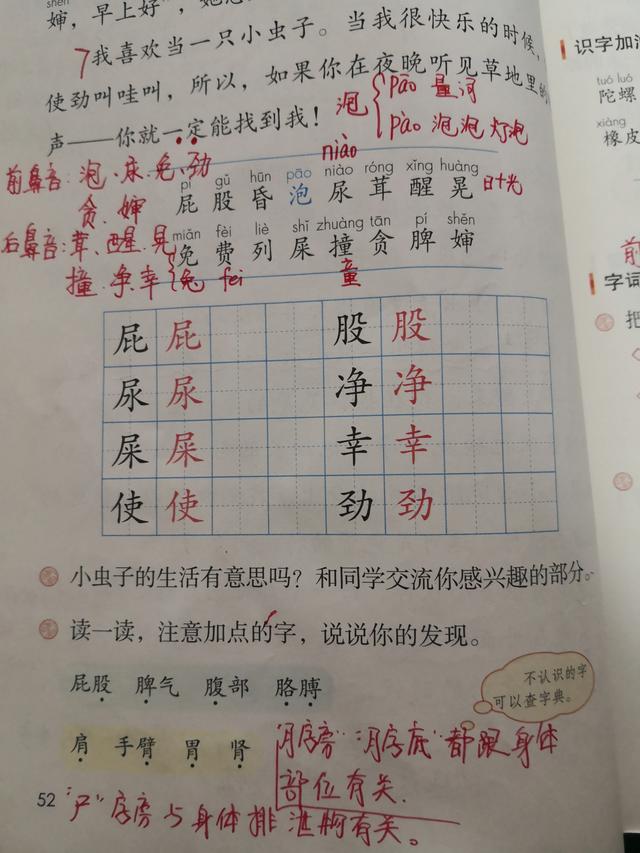 shěn
婶,早上好”,她
7我喜欢当一只小虫子。当我很快乐的时候,
使劲叫哇叫,所以,如果你在夜晚听见草地里的
声——你就一定能找到我!
泡 pāo 量词
pào 泡泡 灯泡
niào
前鼻音:泡、尿、免、劲
贪、婶
pì gǔ hūn pāo niào róng xǐng huàng
屁 股 昏 泡 尿 茸 醒 晃
日+光
后鼻音:茸、醒、晃
撞、净、幸
免 fei
miǎn fèi liè shǐ zhuàng tān pí shěn
免 费 列 屎 撞 贪 脾 婶
童
屁 屁 股 股
尿 尿 净 净
屎 屎 幸 幸
使 使 劲 劲
小虫子的生活有意思吗?和同学交流你感兴趣的部分。
读一读,注意加点的字,说说你的发现。
屁股 脾气 腹部 胳膊
不认识的字
可以查字典。
肩 手臂 胃 肾
“月字旁”“月字底”都跟身体
部位有关.
52
“尸”字旁与身体排泄物有关。
识字加油
tuó luó
陀螺
xiàng
橡皮
前
字词
把